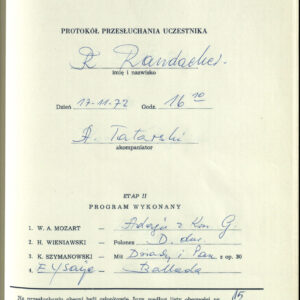 PROTOKÓŁ PRZESŁUCHANIA UCZESTNIKA
R Randacher
imię i nazwisko
Dzień 17-11-72 Godz. 16 10
A. Tatarski
akompaniator
ETAP II
PROGRAM WYKONANY
1. W. A. MOZART - Adagio z Kon G.
2. H. WIENIAWSKI - Polonez D. dur
3. K. SZYMANOWSKI - Driady i Pan z op. 30
4. E. Ysaye - Ballada
15